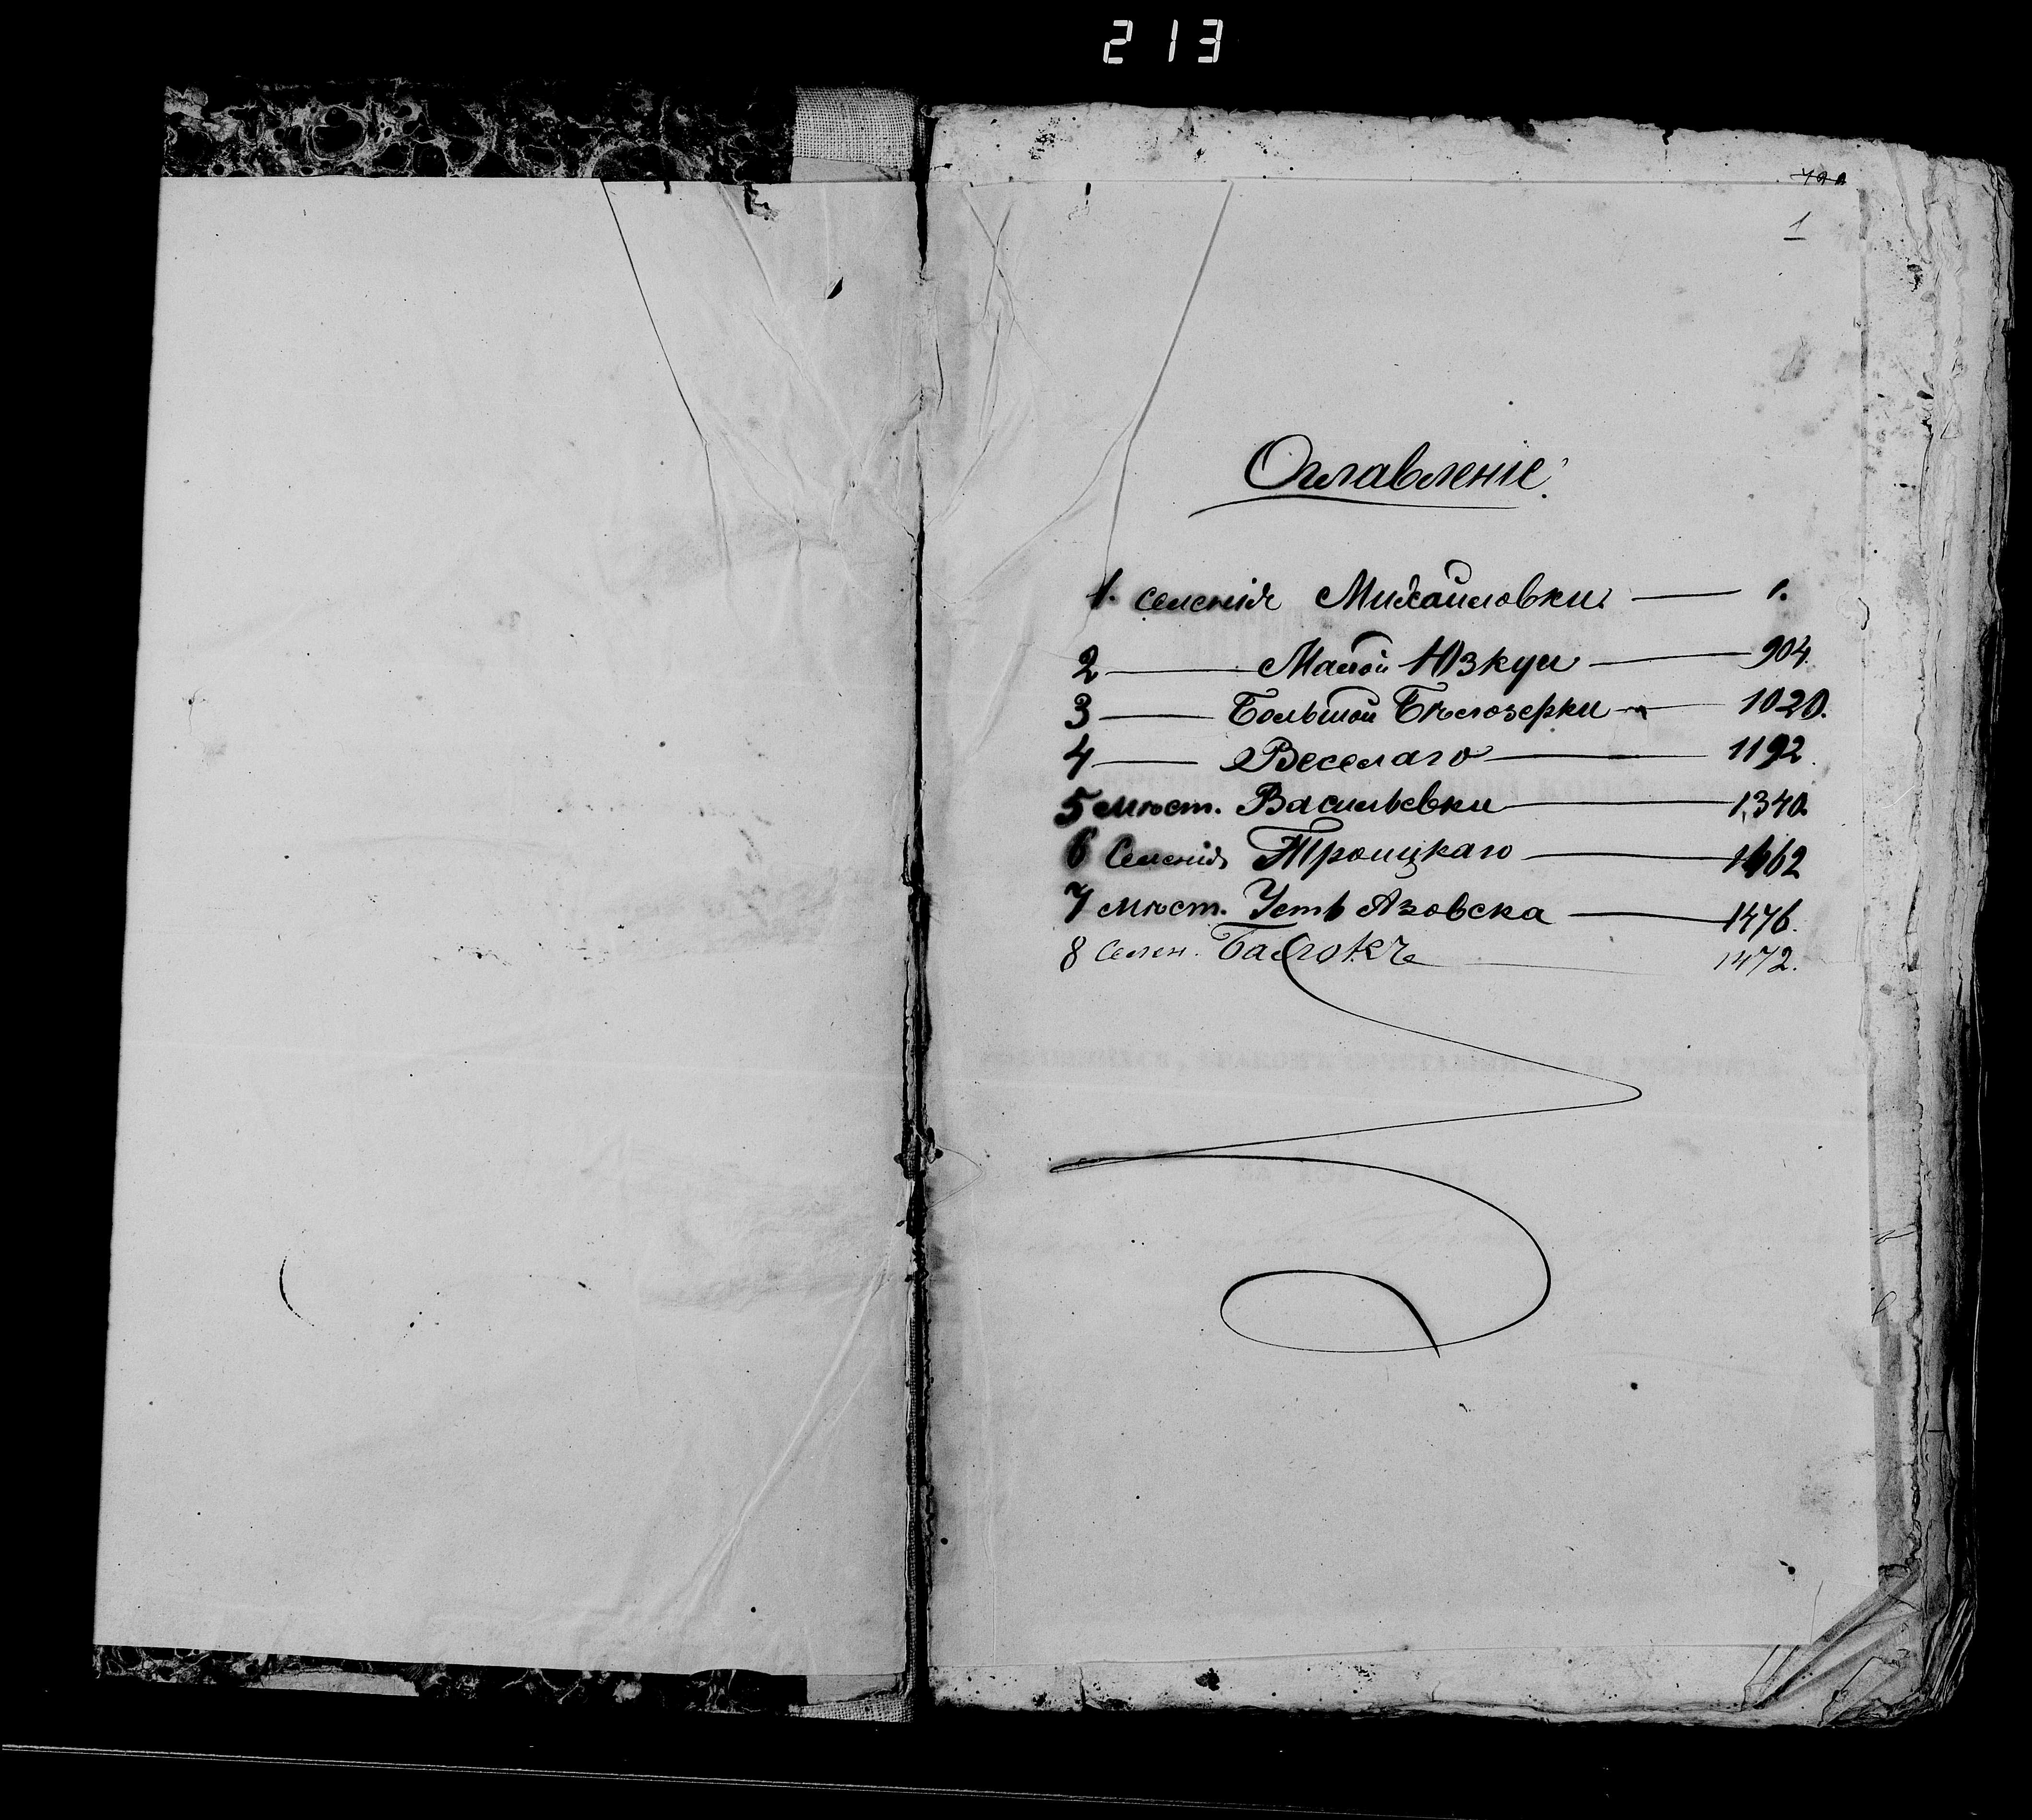 213
1
Оглавленіе.
1. селенія Михайловки. — 1.
2 — Малой Юзкуи — 904.
3 — Большой Бѣлозерки — 1020.
4 — Веселаго — 1192.
5 мѣст. Васильевки — 1340.
6 Селенія Троицкаго — 1462
7 мѣст. Усть Азовска — 1476.
8 Селен. — 1472.